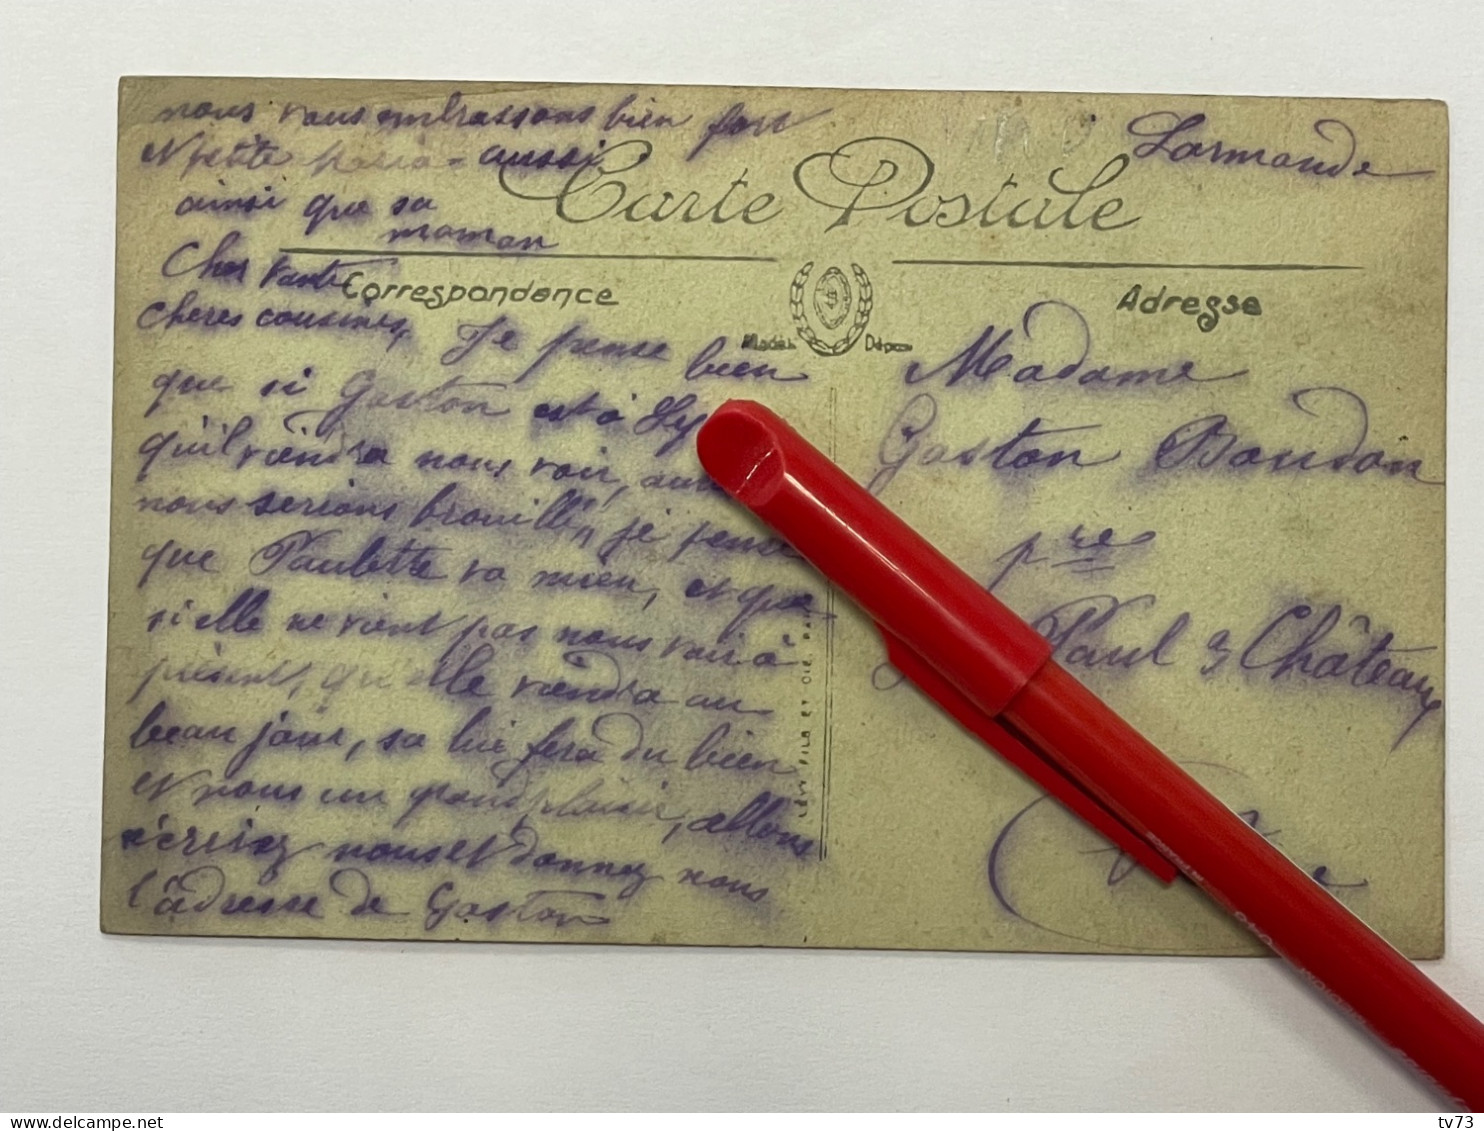 nous vous embrassons bien fort
N petite aussi
ainsi que sa
maman
Carte Postale
Larmande
Correspondance
Adresse
Modèle Déposé
Cher tante
cheres cousines, Je pense bien
que si Gaston est à Ly
qu'il viendra nous voir,
nous serions brouillé, je pense
que Paulette va mieu, et que
si elle ne vient pas nous voir à
présent, qu'elle viendra au
beau jour, sa lui fera du bien
et nous un grand plaisir, allons
écrivez nous et donnez nous
l'adresse de Gaston
LEVY FILS ET CIE. PA
Madame
Gaston Baudon
pres
Paul 3 Châteaux